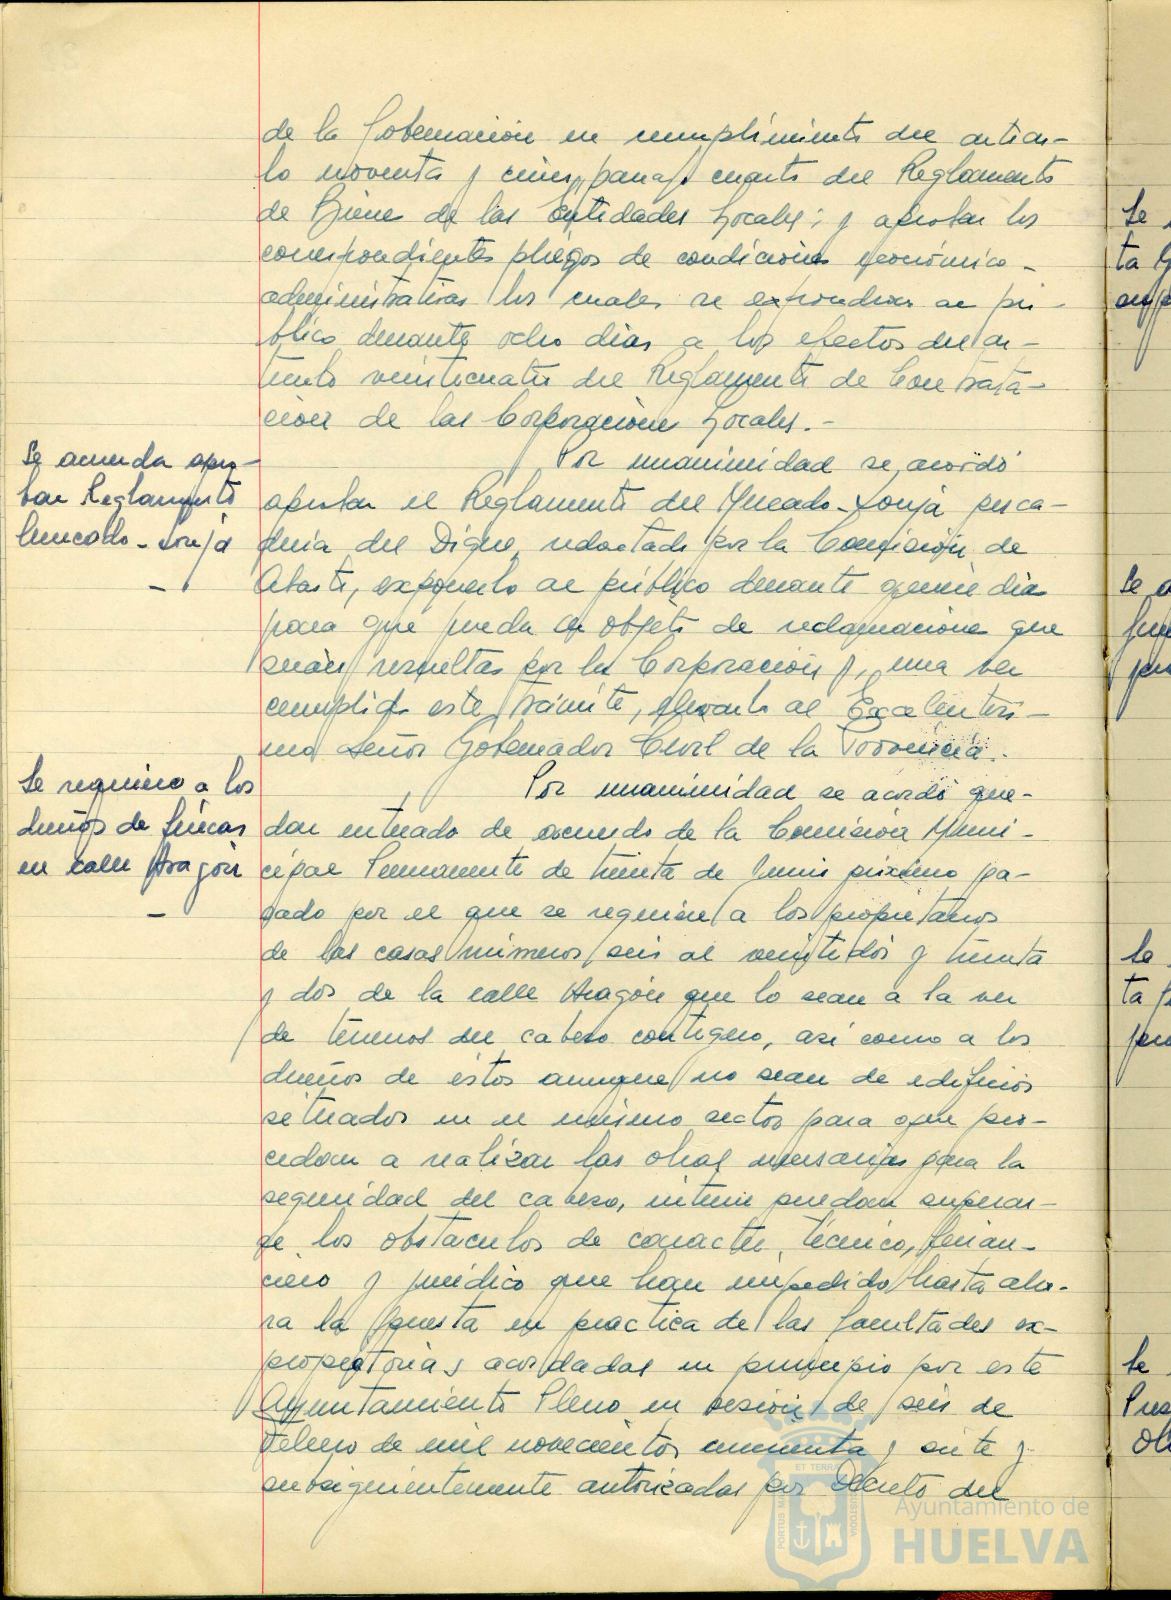 de la Gobernación en cumplimiento del artícu-
lo noventa y cinco, parrafo cuarto del Reglamento
de Bienes de las Entidades Locales; y aprobar los
correspondientes pliegos de condiciones económico-
administrativas los cuales se expondran al pú-
blico durante ocho días a los efectos del ar-
tículo veinticuatro del Reglamento de Contrata-
ción de las Corporaciones Locales.-
Se acuerda apro-
bar Reglamento
Mercado-Lonja
-
Por unanimidad se acordó
aprobar el Reglamento del Mercado-Lonja pesca-
dería del Dique, redactado por la Comisión de
Abastos, exponerlo al público durante quince días
para que pueda ser objeto de reclamaciones que
serán resueltas por la Corporación y, una vez
cumplido este trámite, elevarlo al Excelentísi-
mo Señor Gobernador Civil de la Provincia.-
Se requiere a los
dueños de fincas
en calle Aragón
-
Por unanimidad se acordó que-
dar enterado de acuerdo de la Comisión Muni-
cipal Permanente de treinta de Junio próximo pa-
sado por el que se requiere a los propietarios
de las casas números seis al veintidós y treinta
y dos de la calle Aragón que lo sean a la vez
de terrenos del cabezo contiguo, así como a los
dueños de éstos aunque no sean de edificios
situados en el mismo sector para que pro-
cedan a realizar las obras necesarias para la
seguridad del cabezo, interin puedan superar-
se los obstáculos de caracter técnico, finan-
ciero y jurídico que han impedido hasta aho-
ra la puesta en practica de las facultades ex-
propiatorias acordadas en principio por este
Ayuntamiento Pleno en sesión de seis de
Febrero de mil novecientos cincuenta y siete y
subsiguientemente autorizadas por Decreto del
Ayuntamiento de
HUELVA